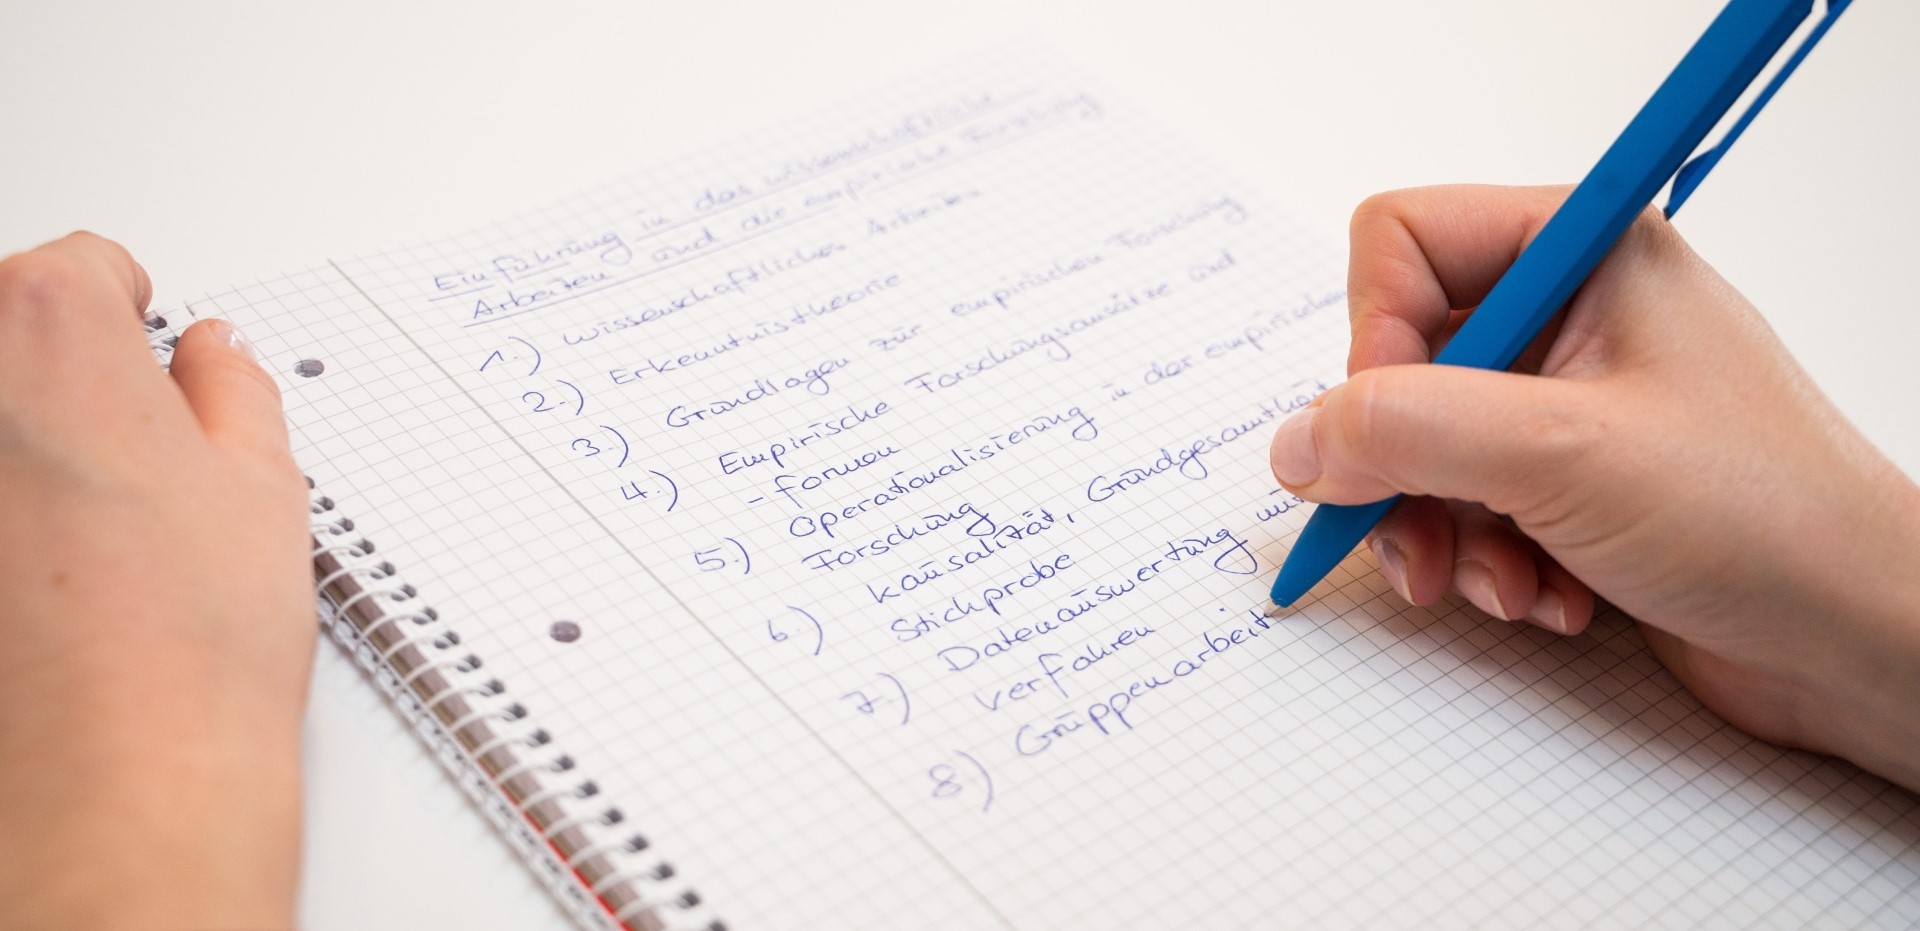 Einführung in das wissenschaftliche
Arbeiten und die empirische Forschung
1.) Wissenschaftliches Arbeiten
2.) Erkenntnistheorie
3.) Grundlagen zur empirischen Forschung
4.) Empirische Forschungsansätze und
-formen
5.) Operationalisierung in der empirischen
Forschung
6.) Kausalität, Grundgesamtheit
Stichprobe
7.) Datenauswertung
verfahren
8.) Gruppenarbeit